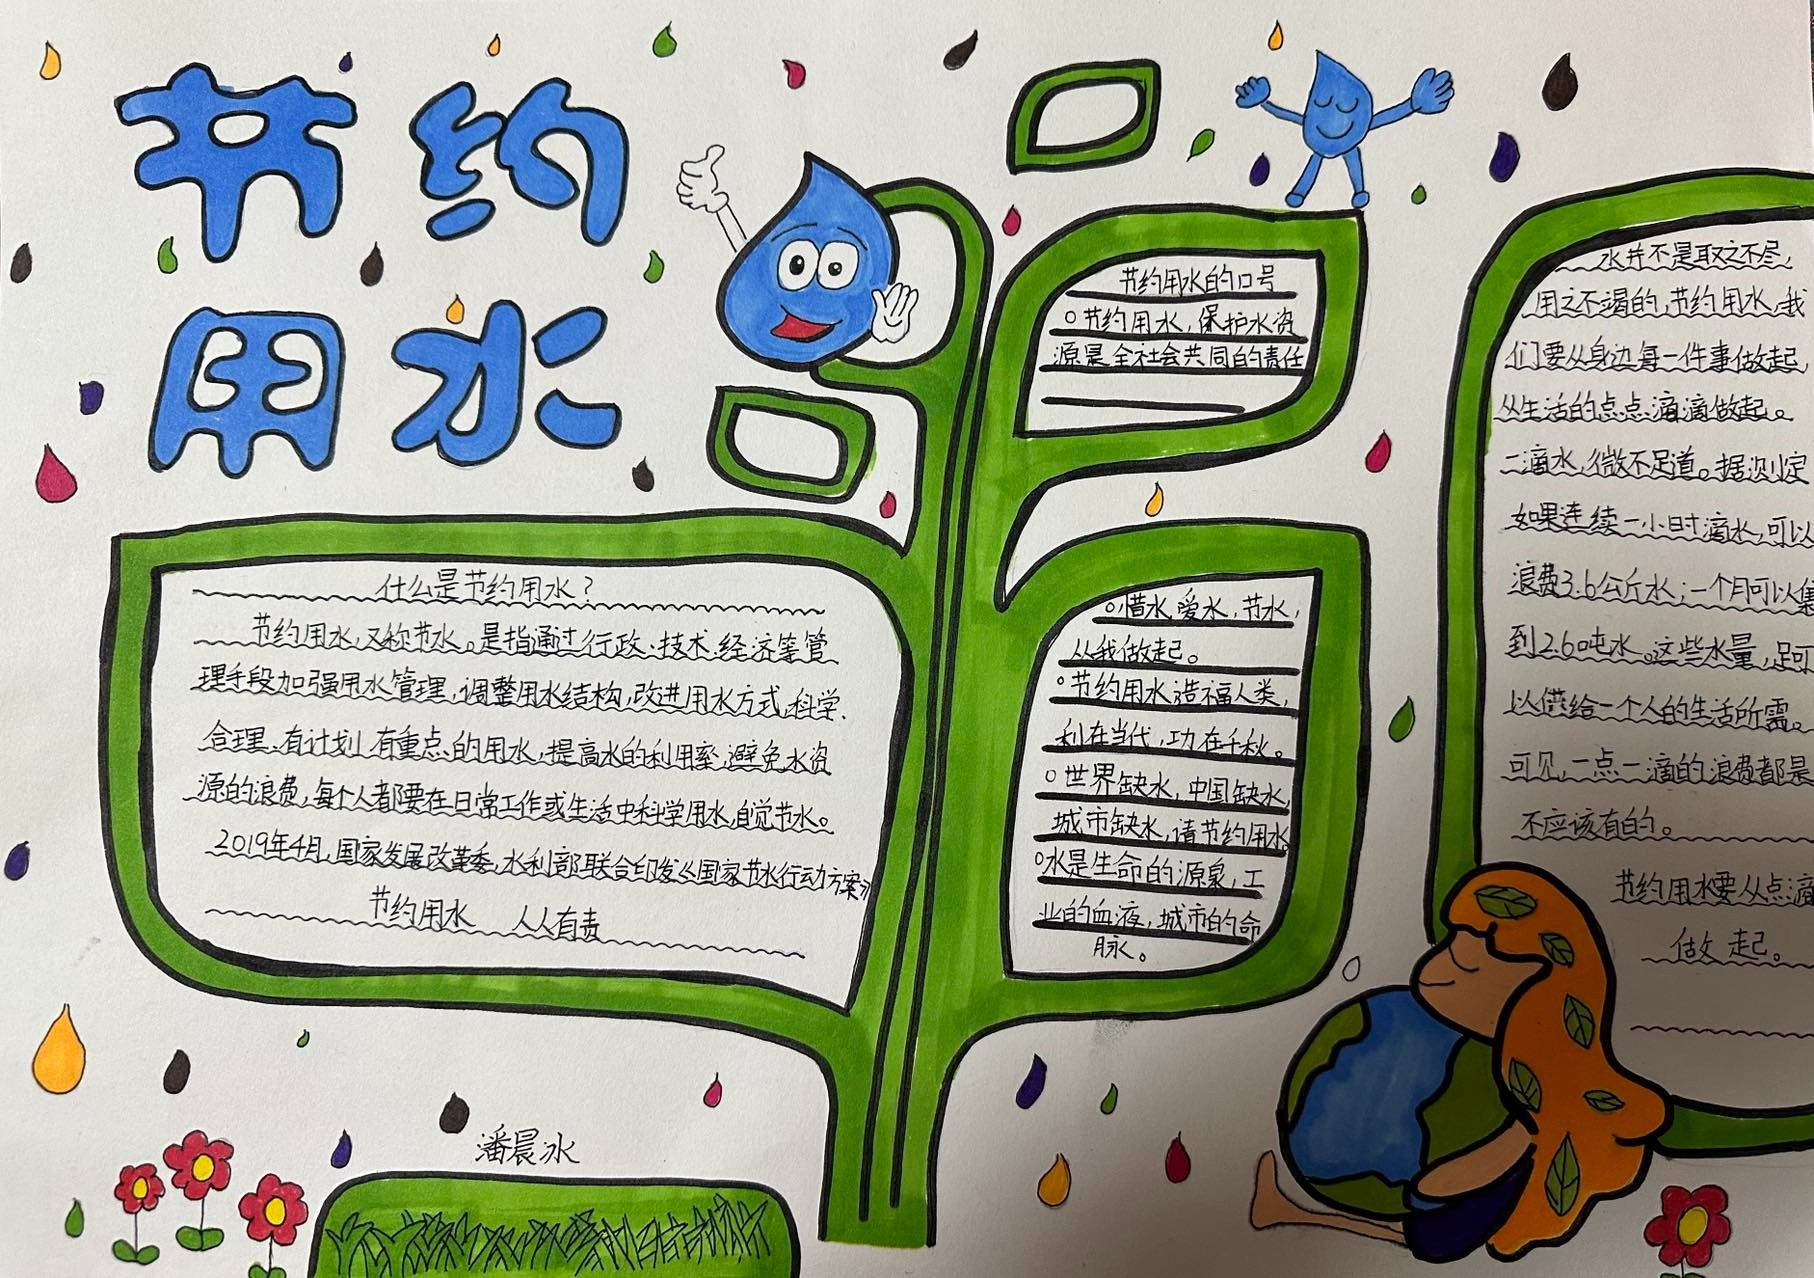 节约
用水
什么是节约用水？
节约用水，又称节水。是指通过行政、技术、经济等管
理手段加强用水管理，调整用水结构，改进用水方式，科学、
合理、有计划、有重点的用水，提高水的利用率，避免水资
源的浪费，每个人都要在日常工作或生活中科学用水，自觉节水。
2019年4月，国家发展改革委，水利部联合印发《国家节水行动方案》
节约用水 人人有责
潘晨冰
节约用水的口号
○节约用水，保护水资
源是全社会共同的责任
○惜水、爱水、节水，
从我做起。
○节约用水造福人类，
利在当代，功在千秋。
○世界缺水，中国缺水，
城市缺水，请节约用水。
○水是生命的源泉，工
业的血液，城市的命
脉。
水并不是取之不尽，
用之不竭的，节约用水，我
们要从身边每一件事做起，
从生活的点点滴滴做起。
一滴水，微不足道。据测定
如果连续一小时滴水，可以
浪费3.6公斤水；一个月可以集
到2.6吨水。这些水量，足可
以供给一个人的生活所需。
可见，一点一滴的浪费都是
不应该有的。
节约用水要从点滴
做起。